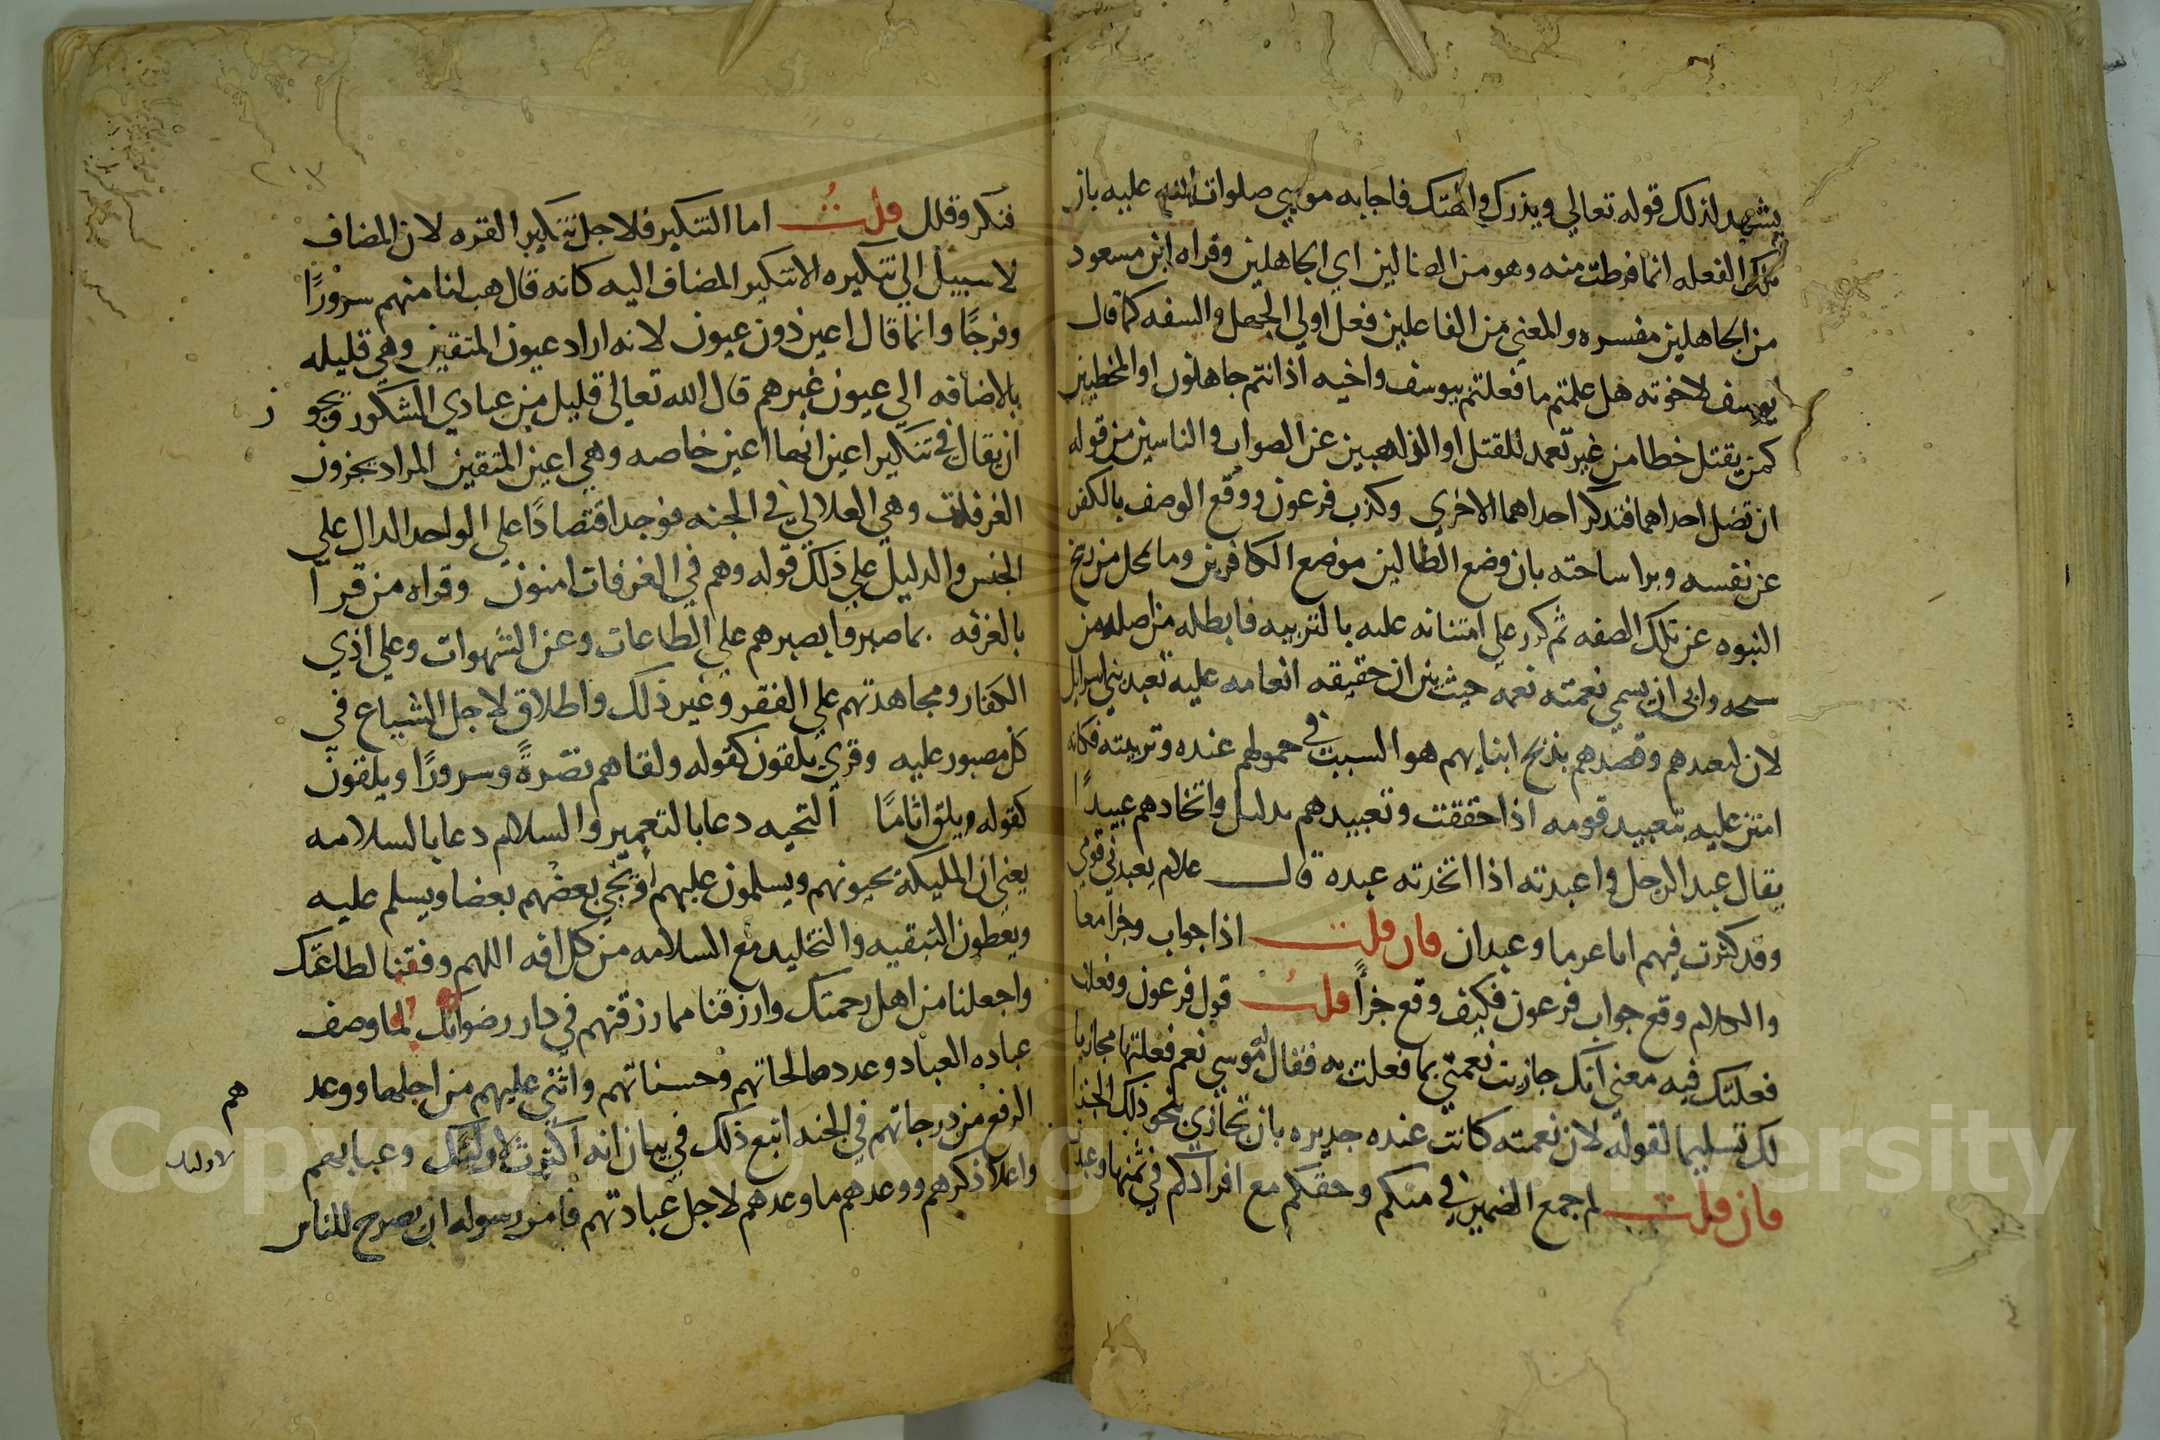 يشهد لذلك قوله تعالي ويذرك والهتك فاجابه موسي صلوات الله عليه بان
تلك الفعله انما فرطت منه وهو من الضالين اي الجاهلين وقراه ابن مسعود
من الجاهلين مفسره والمعني من الفاعلين فعل اولي الجهل والسفه كما قال
يوسف لاخوته هل علمتم ما فعلتم بيوسف واخيه اذ انتم جاهلون او المخطيين
كمن يقتل خطا من غير تعمد للقتل او الذاهبين عن الصواب والناسين من قوله
ان تضل احداهما فتذكر احداهما الاخري وكذب فرعون ووقع الوصف بالكفر
عن نفسه وبرا ساحته بان وضع الظالين موضع الكافرين وما محل من رشح
النبوه عن تلك الصفه ثم كرر علي امتنانه عليه بالتربيه فابطله من اصله من
سحه وابي ان يسمي نعمته نعمه حيث بين ان حقيقه انعامه عليه تعبد بني اسرايل
لان تعبدهم وقصدهم بذبح ابنايهم هو السبب في حصولهم عنده وتربيته فكانه
امتن عليه بتعبيد قومه اذا حققت وتعبيدهم تذليل واتخاذهم عبيدًا
يقال عبد الرجل واعبدته اذا اتخذته عبده قال علام يعبدني قومي
وقد كثرت فيهم اباعر ما وعبدان فان قلت اذا جواب وجزا معا
والكلام وقع جواب فرعون فكيف وقع جزأً قلت قول فرعون وفعلت
فعلتك فيه معني انك جازيت نعمتي بما فعلت به فقال له موسي نعم فعلتها مجازيا
لك تسليما لقوله لان نعمته كانت عنده جديره بان تجازي بنحو ذلك الجزا
فان قلت لم جمع الضمير في منكم وخفتكم مع افراده في تمنها وعبدت
٢٠٧
فنكر وقلل قلت اما التنكير فلاجل تنكير القره لان المضاف
لا سبيل الي تنكيره الا بتنكير المضاف اليه كانه قال هب لنا منهم سرورًا
وفرحًا وانما قال اعين دون عيون لانه اراد عيون المتقين وهي قليله
بالاضافه الي عيون غيرهم قال الله تعالي قليل من عبادي الشكور ويجو
ز
ان يقال في تنكير اعين انها اعين خاصه وهي اعين المتقين المراد يجزون
الغرفات وهي العلالي في الجنه فوحد اقتصادًا علي الواحد الدال علي
الجنس والدليل علي ذلك قوله وهم في الغرفات امنون وقراه من قرا
بالغرفه بما صبروا بصبرهم علي الطاعات وعن الشهوات وعلي اذي
الكفار ومجاهدتهم علي الفقر وغير ذلك واطلاق لاجل الشياع في
كل مصبور عليه وقري يلقون كقوله ولقاهم نضرةً وسرورًا ويلقون
كقوله ويلق اثامًا التحيه دعا بالتعمير والسلام دعا بالسلامه
يعني ان المليكة يحيونهم ويسلمون عليهم او يحي بعضهم بعضا ويسلم عليه
ويعطون التبقيه والتخليد مع السلامه من كل افه اللهم وفقنا لطاعتك
واجعلنا من اهل رحمتك وارزقنا مما رزقتهم في دار رضوانك لما وصف
عباده العباد وعدد صالحاتهم وحسناتهم واثني عليهم من اجلها ووعد
هم
الرفع من درجاتهم في الجنه اتبع ذلك في بيان انه اكترث لاوليك وعبا بهم
لاوليك
واعلا ذكرهم ووعدهم ما وعدهم لاجل عبادتهم فامر رسوله ان يصرح للناس
Copyright © King Saud University